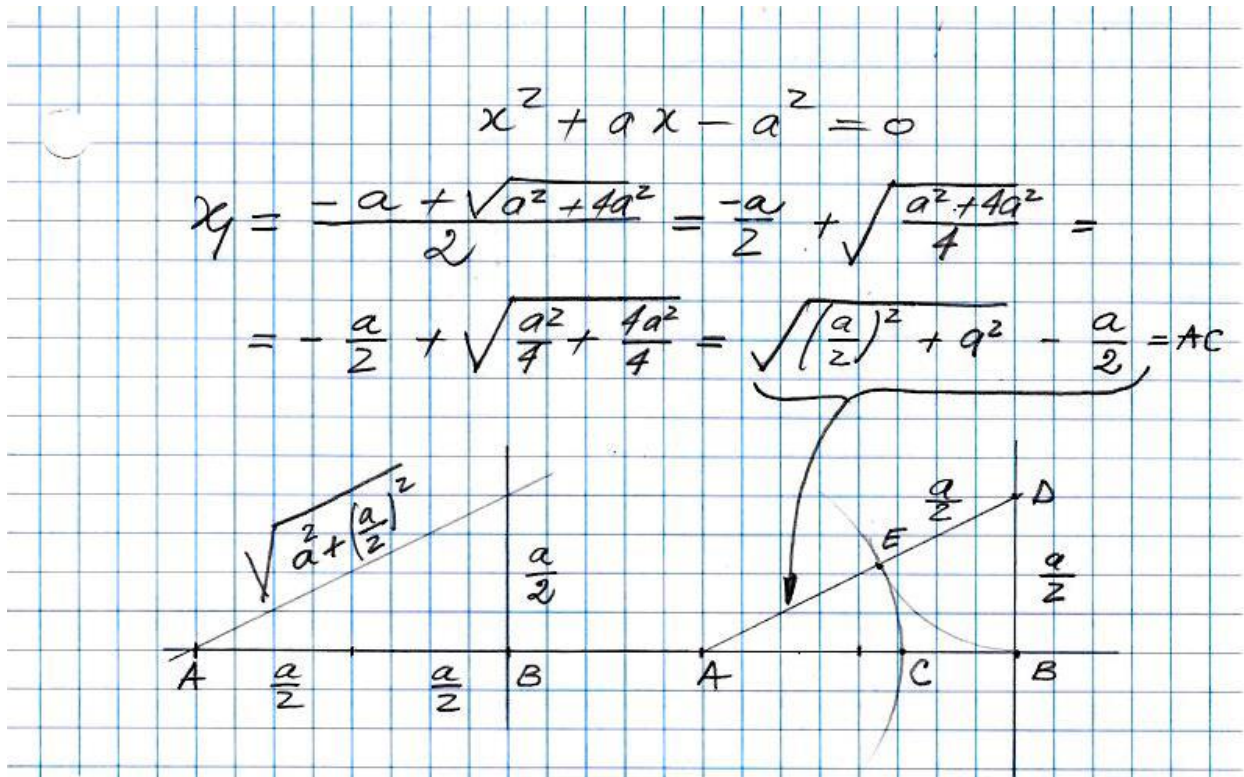 x² + ax - a² = 0
x₁ = (-a + √(a² + 4a²))/2 = -a/2 + √((a² + 4a²)/4) =
= - a/2 + √(a²/4 + 4a²/4) = √((a/2)² + a²) - a/2 = AC
√(a² + (a/2)²)
a/2
A a/2 a/2 B
a/2 D
E
a/2
A C B